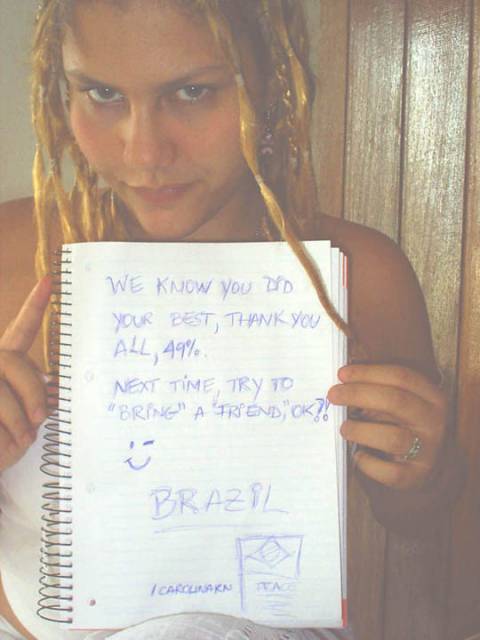 WE KNOW YOU DID
YOUR BEST, THANK YOU
ALL, 49%.
NEXT TIME, TRY TO
"BRING" A "FRIEND", OK?!
BRAZIL
/CAROLINARN
PEACE